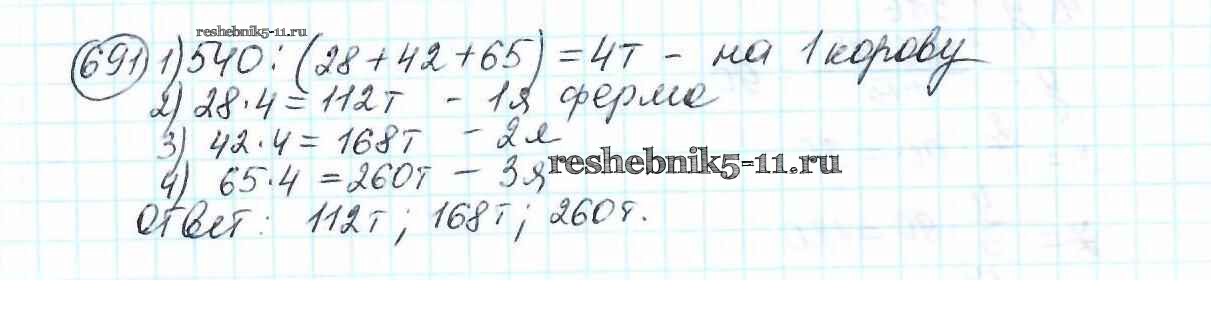 reshebnik5-11.ru
691 1) 540 : (28 + 42 + 65) = 4т - на 1 корову
2) 28 · 4 = 112т - 1я ферма
3) 42 · 4 = 168т - 2я
reshebnik5-11.ru
4) 65 · 4 = 260т - 3я
Ответ: 112т; 168т; 260т.